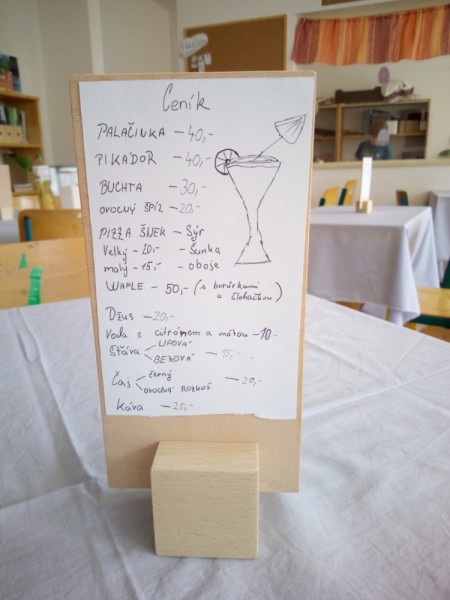 Ceník
PALAČINKA - 40,-
PIKADOR - 40,-
BUCHTA - 30,-
OVOCNÝ ŠPÍZ - 20,-
PIZZA ŠNEK - Sýr
Velký - 20,- - Šunka
malý - 15,- - oboje
WAFLE - 50,- (s borůvkami
a šlehačkou)
Džus - 20,-
Voda s citrónem a mátou - 10,-
Šťáva LIPOVÁ
BEZOVÁ - 15,-
Čaj černý
OVOCNÁ ROZKOŠ - 20,-
Káva - 25,-